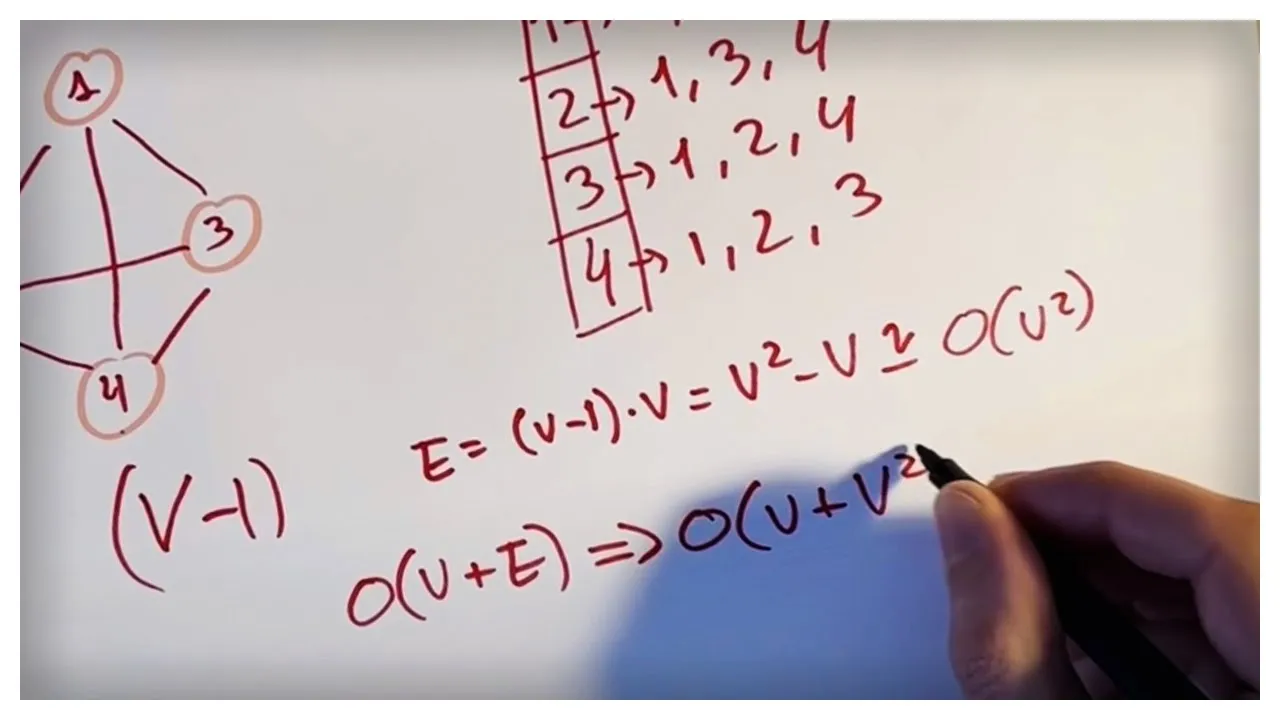 1
3
4
2 → 1, 3, 4
3 → 1, 2, 4
4 → 1, 2, 3
E = (V-1)·V = V² - V ≃ O(V²)
(V-1)
O(V+E) => O(V+V²